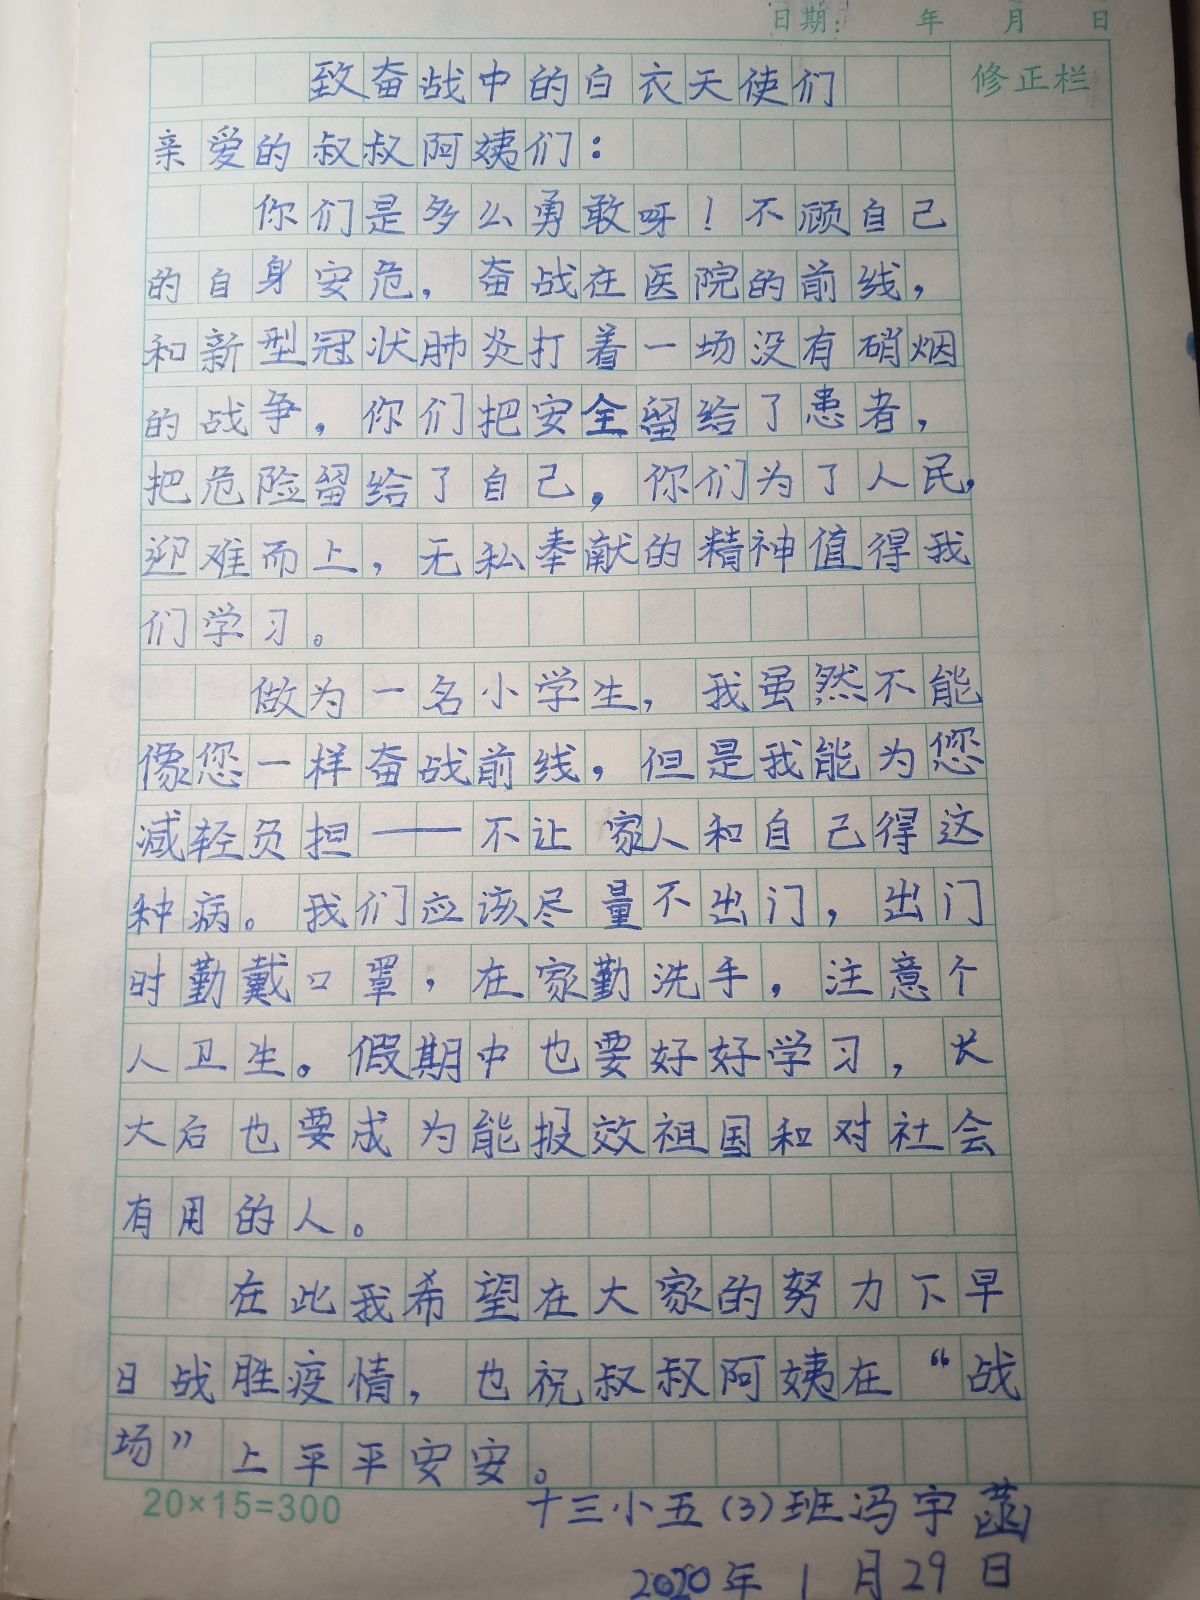 日期： 年 月 日
致奋战中的白衣天使们
修正栏
亲爱的叔叔阿姨们：
你们是多么勇敢呀！不顾自己
的自身安危，奋战在医院的前线，
和新型冠状肺炎打着一场没有硝烟
的战争，你们把安全留给了患者，
把危险留给了自己，你们为了人民，
迎难而上，无私奉献的精神值得我
们学习。
做为一名小学生，我虽然不能
像您一样奋战前线，但是我能为您
减轻负担——不让家人和自己得这
种病。我们应该尽量不出门，出门
时勤戴口罩，在家勤洗手，注意个
人卫生。假期中也要好好学习，长
大后也要成为能报效祖国和对社会
有用的人。
在此我希望在大家的努力下早
日战胜疫情，也祝叔叔阿姨在“战
场”上平平安安。
20×15=300
十三小五(3)班冯宇菡
2020年1月29日